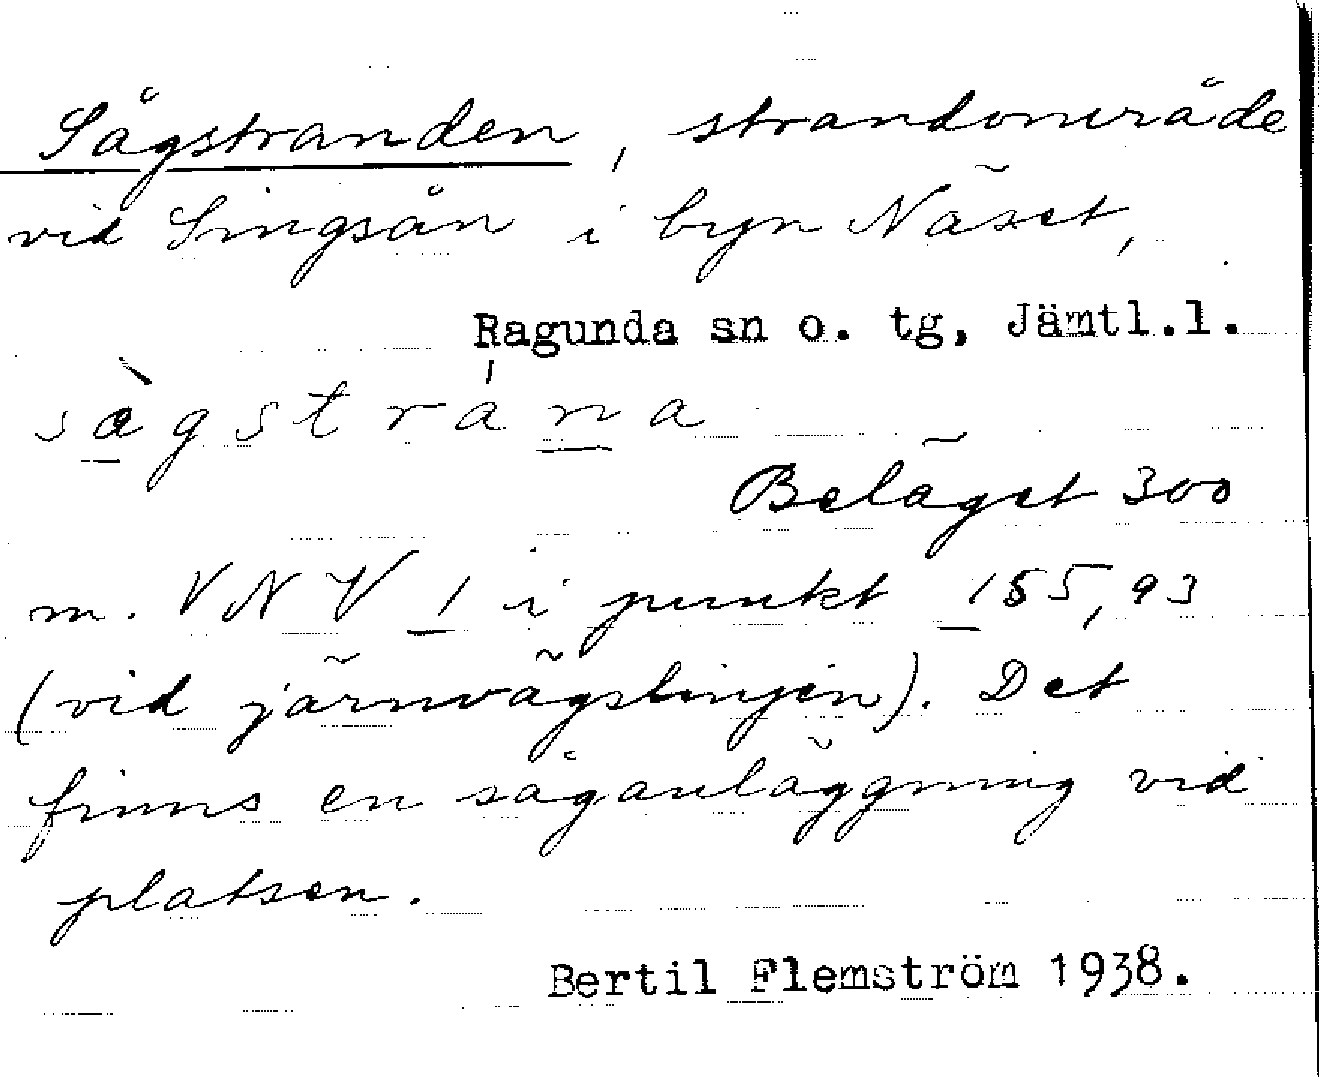 Sågstranden, strandområde
vid Singsån i byn Näset,
Ragunda sn o. tg, Jämtl.l.
sàgstrána
Beläget 300
m. VNV 1 i punkt 155,93
(vid järnvägslinjen). Det
finns en såganläggning vid
platsen.
Bertil Flemström 1938.